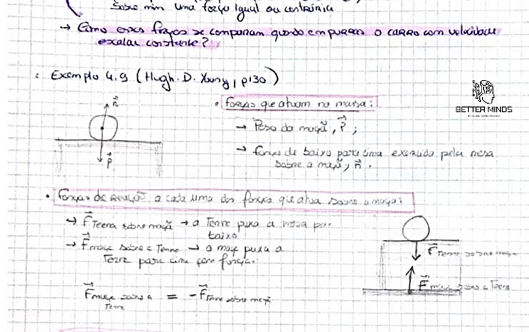 sobre mim uma força igual ou contrária
→ Como essas forças se comparam quando empurro o carro com velocidade
escalar constante?
Exemplo 4.9 (Hugh. D. Young, p130)
n
P
BETTER MINDS
• forças que atuam na massa:
→ Peso da maçã, P;
→ força de baixo para cima exercida pela mesa
sobre a maçã, n.
• forças de reação a cada uma das forças que atua sobre a maçã:
→ F Terra sobre maçã → a Terra puxa a maçã por
baixo.
→ F maçã sobre a Terra → a maçã puxa a
Terra para cima com força.
F maçã sobre a Terra = - F Terra sobre maçã
F Terra sobre maçã
F maçã sobre a Terra